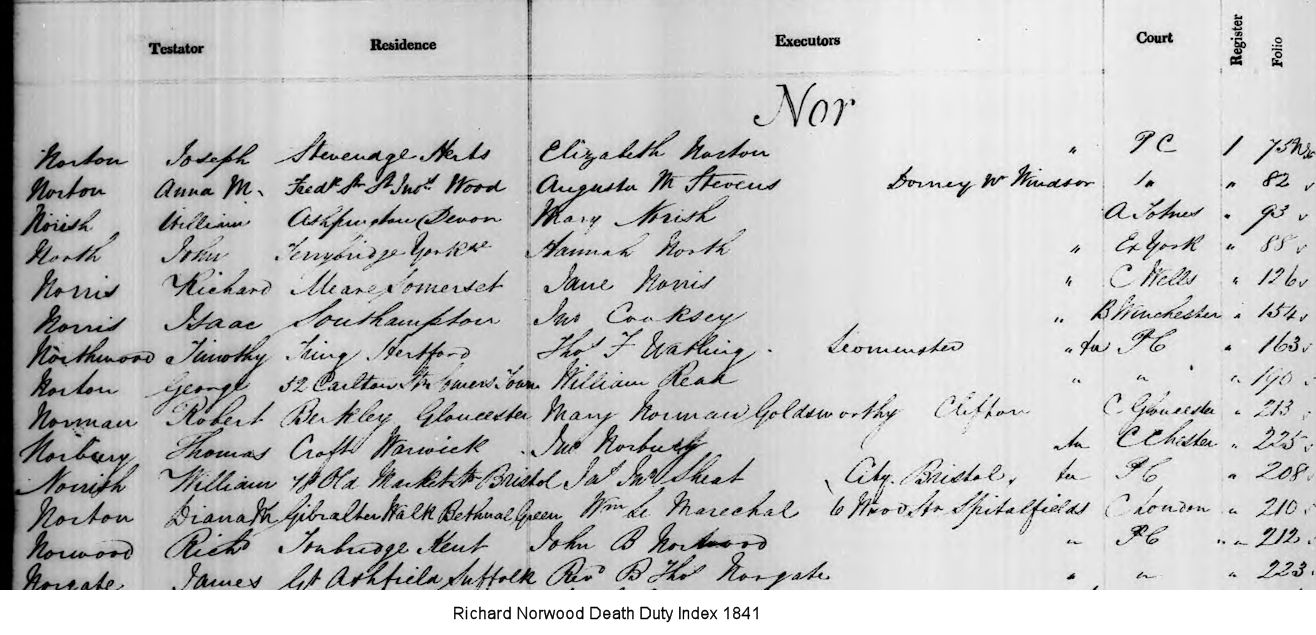 Testator Residence Executors Court Register Folio
Nor
Norton Joseph Stevenage Herts Elizabeth Norton " PC 1 75
Norton Anna M. Fredk St St Jno's Wood Augusta M Stevens Dorney Nr Windsor " 82
Norish William Ashprington Devon Mary Norish A Totnes " 93
North John Ferrybridge Yorkse Hannah North " Ex York " 88
Norris Richard Meare Somerset Jane Norris " C Wells " 126
Norris Isaac Southampton Jno Cooksey " B Winchester " 154
Northwood Timothy Tring Hertford Thos F Watling Leominster " PC " 163
Norton George 52 Carlton St Somers Town William Reak " " " 190
Norman Robert Berkley Gloucester Mary Norman Goldsworthy Clifton C Gloucester " 213
Norbury Thomas Croft Warwick Jno Norbury C Chester " 225
Norrish William Old Market St Bristol Jas Jno Sheat City Bristol, PC " 208
Norton Diana Gibralter Walk Bethnal Green Wm Le Marechal 6 Wood St Spitalfields C London " 210
Norwood Richd Tonbridge Kent John B Norwood " PC " " 212
Norgate James Gt Ashfield Suffolk Revd B Thos Norgate " " " 223
Richard Norwood Death Duty Index 1841